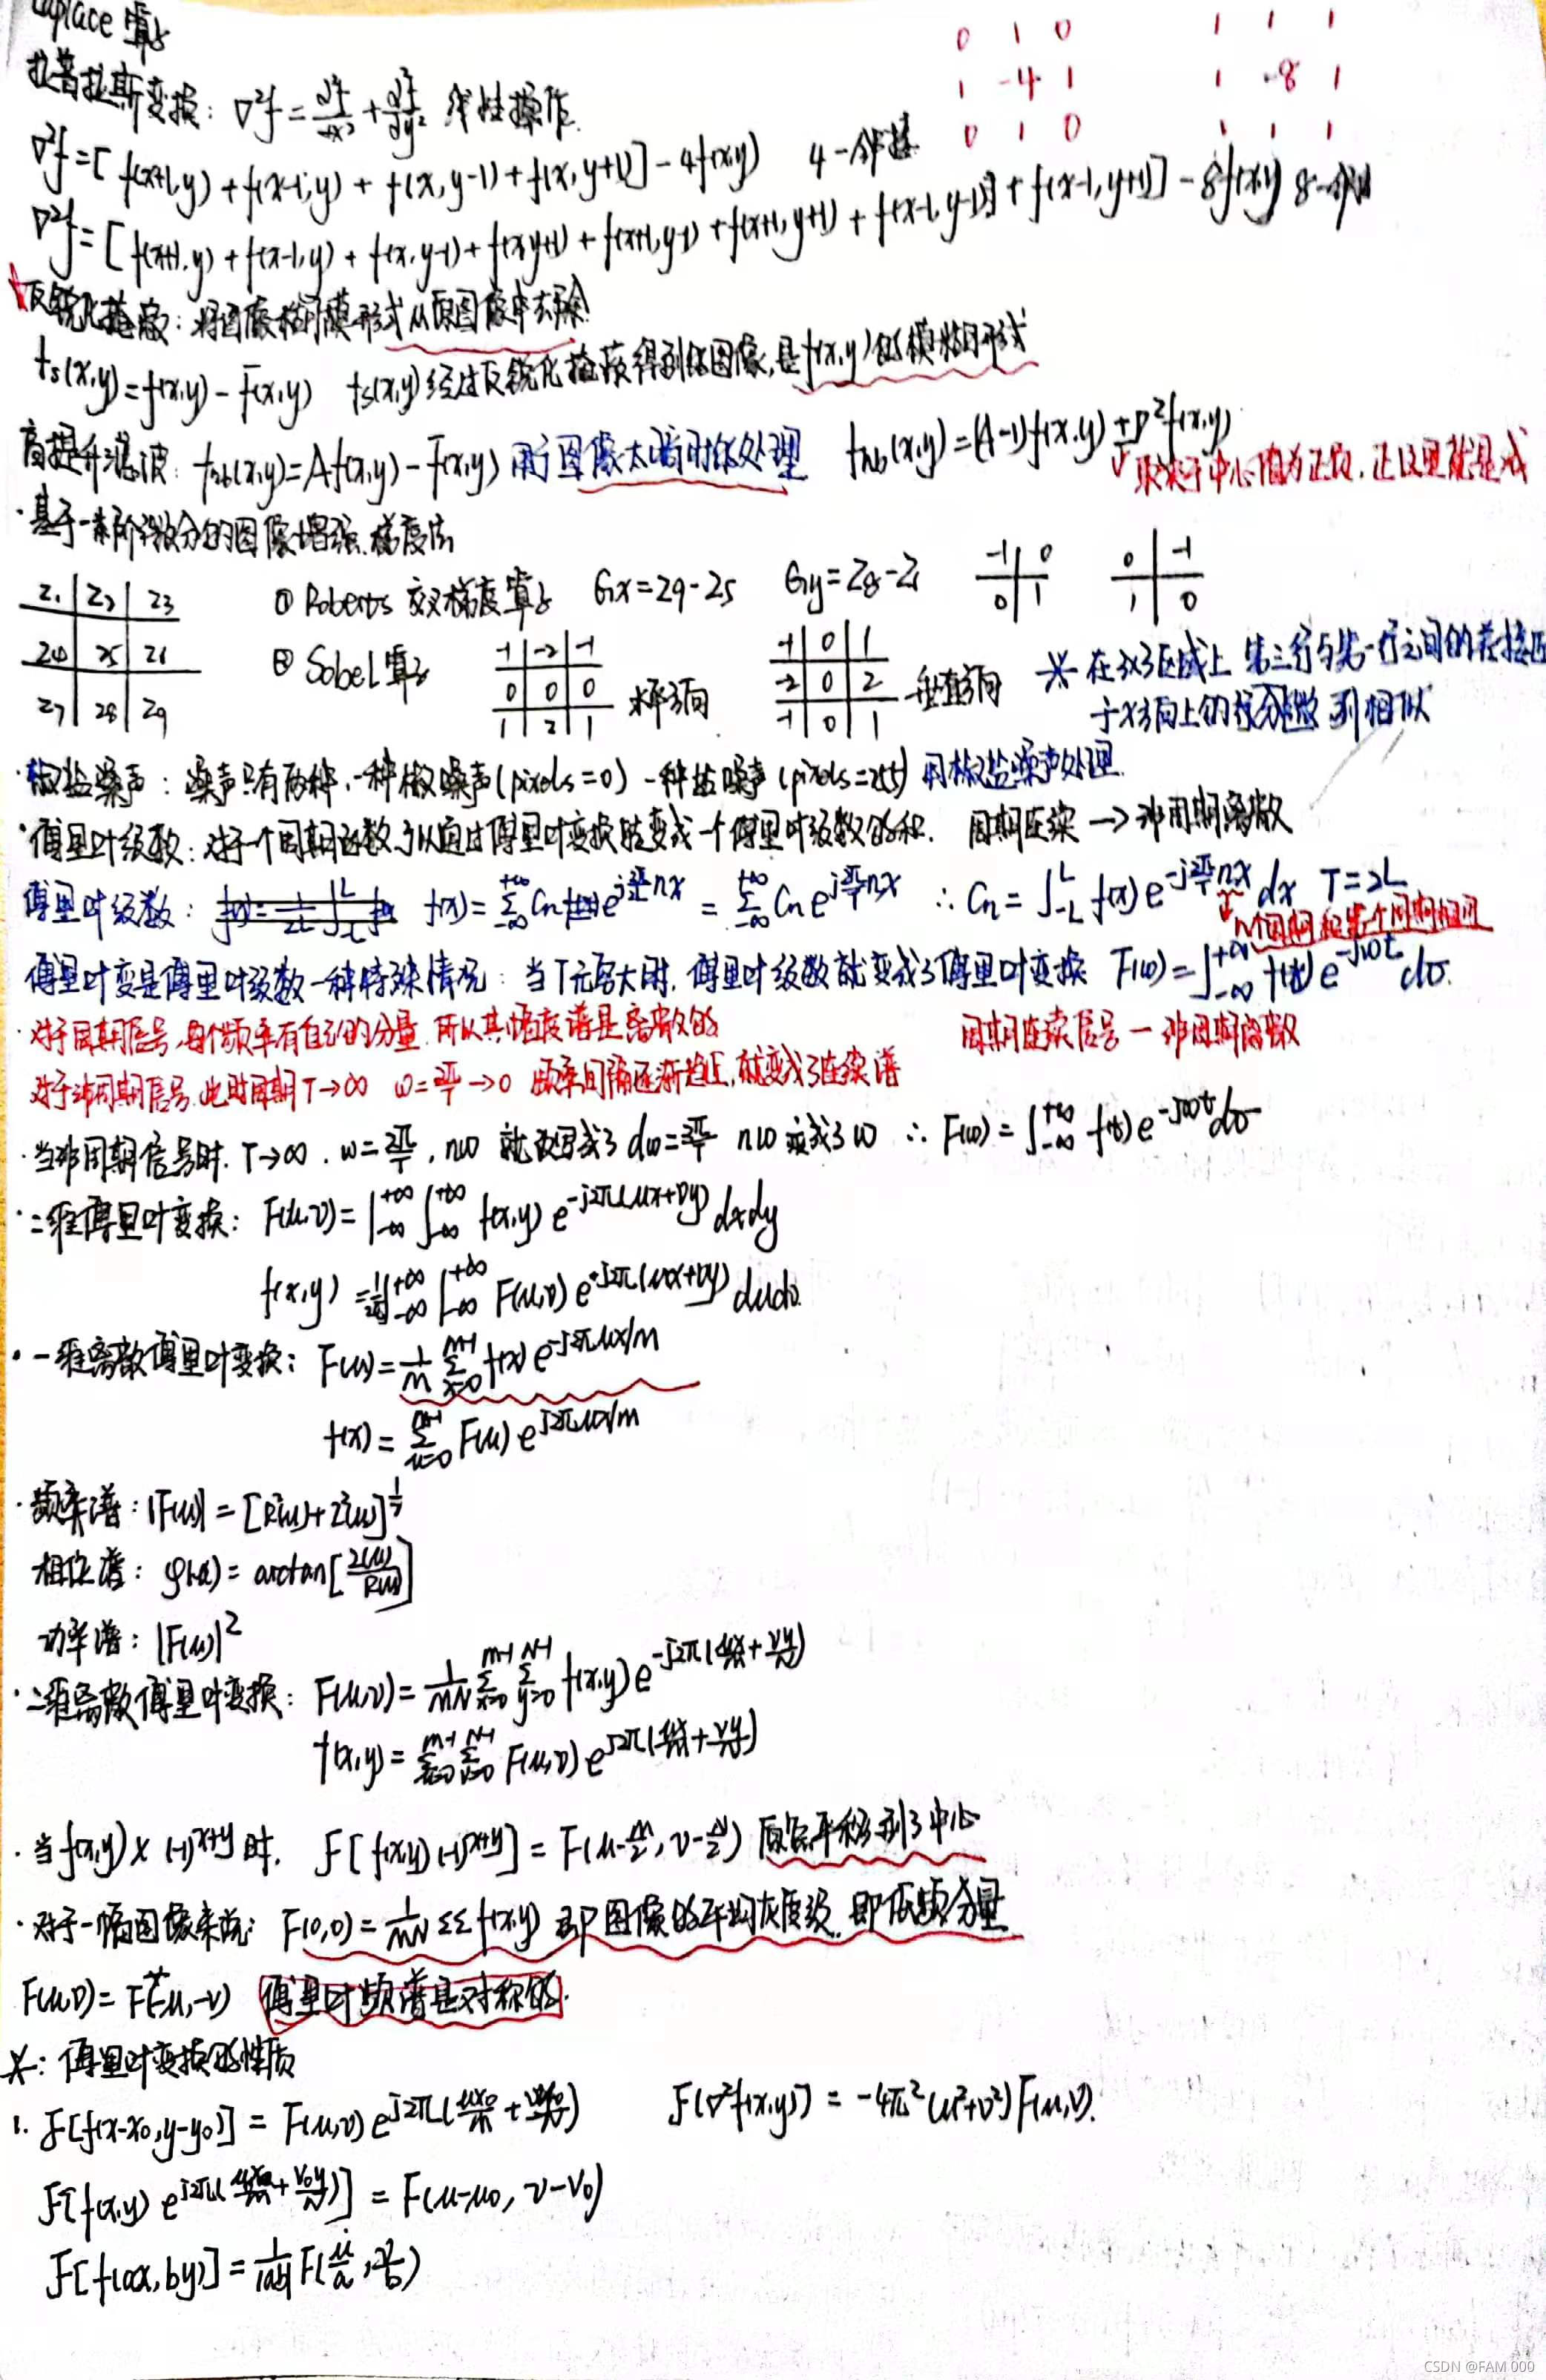 Laplace 算子
0 1 0 1 1 1
1 -4 1 1 -8 1
0 1 0 1 1 1
拉普拉斯变换: ∇²f = ∂²f/∂x² + ∂²f/∂y² 线性操作.
∇²f = [f(x+1,y) + f(x-1,y) + f(x,y-1) + f(x,y+1)] - 4f(x,y) 4-邻接
∇²f = [f(x+1,y) + f(x-1,y) + f(x,y-1) + f(x,y+1) + f(x+1,y-1) + f(x+1,y+1) + f(x-1,y-1)] + f(x-1,y+1)] - 8f(x,y) 8-邻
反锐化掩蔽: 将图像模糊形式从原图像中去除
fs(x,y) = f(x,y) - f̄(x,y) fs(x,y)经过反锐化掩蔽得到的图像,是f(x,y)的模糊形式
高提升滤波: fhb(x,y) = Af(x,y) - f̄(x,y) 用于图像太暗时的处理 fhb(x,y) = (A-1)f(x,y) ± ∇²f(x,y)
取决于中心值为正负,正这里就是减
·基于一阶微分的图像增强.梯度法
z1 | z2 | z3
z4 | z5 | z6
z7 | z8 | z9
① Roberts 交叉梯度算子 Gx = z9 - z5 Gy = z8 - z6
-1 | 0 0 | -1
0 | 1 1 | 0
② Sobel 算子
-1 | -2 | -1
0 | 0 | 0
1 | 2 | 1 水平方向
-1 | 0 | 1
-2 | 0 | 2
-1 | 0 | 1 垂直方向
※ 在3x3区域上 第三行与第一行之间的差接近
于x方向上的微分,列相似
·椒盐噪声: 噪声只有两种,一种椒噪声(pixels=0) 一种盐噪声(pixels=255) 用椒盐噪声处理.
·傅里叶级数: 对于一个周期函数可以通过傅里叶变换转变成一个傅里叶级数的和. 周期连续 → 非周期离散
傅里叶级数: f(x) = Σ Cn e^{j2π/T nx} = Σ Cn e^{j2π/T nx} ∴ Cn = ∫_{-L}^{L} f(x) e^{-j2π/T nx} dx T=2L
n个周期和第一个周期相同
傅里叶变是傅里叶级数一种特殊情况: 当T无穷大时,傅里叶级数就变成了傅里叶变换 F(ω) = ∫_{-∞}^{+∞} f(t) e^{-jωt} dt.
·对于周期信号,每个频率有自己的分量,所以其幅度谱是离散的 周期连续信号 - 非周期离散
对于非周期信号,此时周期T→∞ ω=2π/T→0 频率间隔逐渐趋近,就变成了连续谱
·当非周期信号时. T→∞. ω=2π/T, nω 就改写成了 dω=2π/T nω 变成了 ω ∴ F(ω) = ∫_{-∞}^{+∞} f(t) e^{-jωt} dt
·二维傅里叶变换: F(u,v) = ∫_{-∞}^{+∞} ∫_{-∞}^{+∞} f(x,y) e^{-j2π(ux+vy)} dxdy
f(x,y) = 1/2π ∫_{-∞}^{+∞} ∫_{-∞}^{+∞} F(u,v) e^{j2π(ux+vy)} dudv.
·一维离散傅里叶变换: F(u) = 1/M Σ_{x=0}^{M-1} f(x) e^{-j2πux/M}
f(x) = Σ_{u=0}^{M-1} F(u) e^{j2πux/M}
·频率谱: |F(u)| = [R²(u) + I²(u)]^{1/2}
相位谱: φ(u) = arctan[I(u)/R(u)]
功率谱: |F(u)|²
·二维离散傅里叶变换: F(u,v) = 1/MN Σ_{x=0}^{M-1} Σ_{y=0}^{N-1} f(x,y) e^{-j2π(ux/M + vy/N)}
f(x,y) = Σ_{u=0}^{M-1} Σ_{v=0}^{N-1} F(u,v) e^{j2π(ux/M + vy/N)}
·当f(x,y) × (-1)^{x+y}时. F[f(x,y)(-1)^{x+y}] = F(u-M/2, v-N/2) 原点平移到了中心
·对于一幅图像来说: F(0,0) = 1/MN ΣΣ f(x,y) 即图像的平均灰度级.即低频分量
F(u,v) = F*(-u,-v) 傅里叶频谱是对称的.
※: 傅里叶变换的性质
1. F[f(x-x0,y-y0)] = F(u,v) e^{j2π(ux0/M + vy0/N)} F(∇²f(x,y)) = -4π²(u²+v²)F(u,v).
F[f(x,y) e^{j2π(u0x/M + v0y/N)}] = F(u-u0, v-v0)
F[f(ax,by)] = 1/|ab| F(u/a, v/b)
CSDN @FAM 000